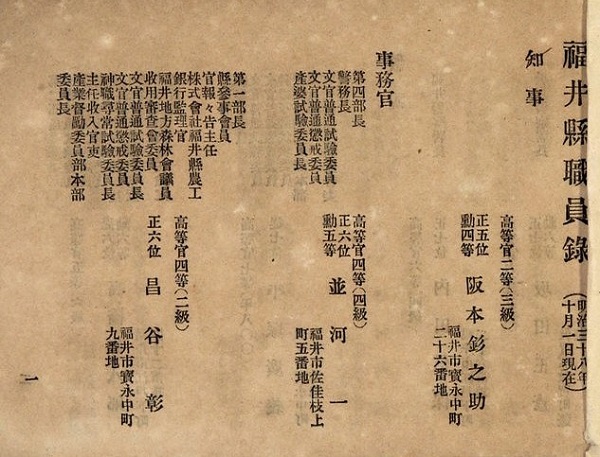 福井縣職員錄
(明治三十八年
十月一日現在)
知事
高等官三等(三級)
正五位
勳四等
阪本釤之助
福井市寶永中町
二十六番地
事務官
第四部長
警務長
文官普通試驗委員
文官普通懲戒委員
產婆試驗委員長
高等官四等(四級)
正六位
勳五等
並河一
福井市佐佳枝上
町五番地
第一部長
縣參事會員
官報々告主任
株式會社福井縣農工
銀行監理官
福井地方森林會議員
收用審查會委員
文官普通試驗委員長
文官普通懲戒委員
神職尋常試驗委員長
主任收入官吏
產業督勵委員部本部
委員長
高等官四等(二級)
正六位
昌谷彰
福井市寶永中町
九番地
一